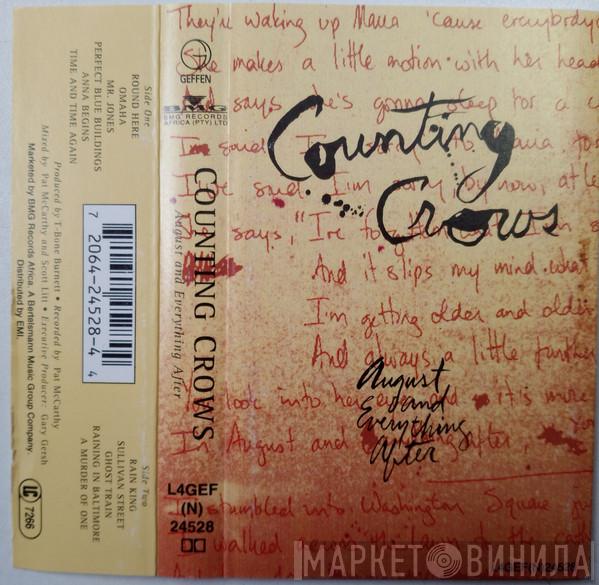 Side One
ROUND HERE
OMAHA
MR. JONES
PERFECT BLUE BUILDINGS
ANNA BEGINS
TIME AND TIME AGAIN
Produced by T-Bone Burnett • Recorded by Pat McCarthy
Mixed by Pat McCarthy and Scott Litt • Executive Producer: Gary Gersh
Marketed by BMG Records Africa. A Bertelsmann Music Group Company.
Distributed by EMI.
7 2064-24528-4 4
Side Two
RAIN KING
SULLIVAN STREET
GHOST TRAIN
RAINING IN BALTIMORE
A MURDER OF ONE
LC 7266
GEFFEN
BMG
BMG RECORDS
AFRICA (PTY) LTD
COUNTING CROWS
August and Everything After
L4GEF
(N)
24528
They're waking up Maria 'cause everybody
She makes a little motion with her head
And says he's gonna sleep for a
Counting
Crows
I'm sorry
says, "I've
And it slips my mind what
I'm getting older and older
And always a little further
August
and
Everything
After
look into her it's more
In August and
I stumbled into Washington Square
walked
L4GEF(N)24528
МАРКЕТ ВИНИЛА